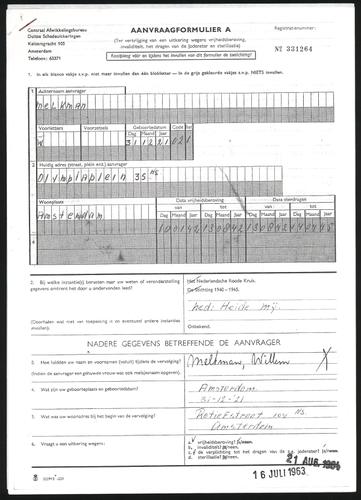 Centraal Afwikkelingsbureau
Duitse Schadeuitkeringen
Keizersgracht 105
Amsterdam
Telefoon: 63371
AANVRAAGFORMULIER A
(Ter verkrijging van een uitkering wegens vrijheidsberoving,
invaliditeit, het dragen van de Jodenster en sterilisatie)
Raadpleeg vóór en tijdens het invullen van dit formulier de toelichting!
Registratienummer:
Nº 331264
1. In als blanco vakje s.v.p. niet meer invullen dan één blokletter — in de grijs gekleurde vakjes s.v.p. NIETS invullen.
1 Achternaam aanvrager
MELKMAN
Voorletters Voorzetsels Geboortedatum Code
Dag Maand Jaar
W 31 12 21 021
2 Huidig adres (straat, plein enz.) aanvrager
Olympiaplein 35 hs
Woonplaats Data vrijheidsberoving Data sterdragen
van tot van tot
Dag Maand Jaar Dag Maand Jaar Dag Maand Jaar Dag Maand Jaar
3 Amsterdam
4
2. Bij welke instantie(s) berusten naar uw weten of veronderstelling
gegevens omtrent het door u ondervonden leed?
(Doorhalen wat niet van toepassing is en eventueel andere instanties
invullen).
Het Nederlandsche Roode Kruis.
De Stichting 1940-1945.
Ned: Heide Mij
Onbekend.
NADERE GEGEVENS BETREFFENDE DE AANVRAGER
3. Hoe luidden uw naam en voornamen (voluit) tijdens de vervolging?
(Indien de aanvrager een gehuwde vrouw was ook meisjesnaam opgeven).
Melkman, Willem
4. Wat zijn uw geboorteplaats en geboortedatum?
Amsterdam
31-12-'21
5. Wat was uw woonadres bij het begin van de vervolging?
Retiefstraat 104 hs
Amsterdam
6. Vraagt u een uitkering wegens:
a. vrijheidsberoving? ja/neen.
b. invaliditeit? ja/neen.
c. de verplichting tot het dragen van de z.g. jodenster? ja/neen.
d. sterilisatie? ja/neen.
21 AUG. 1964
16 JULI 1963